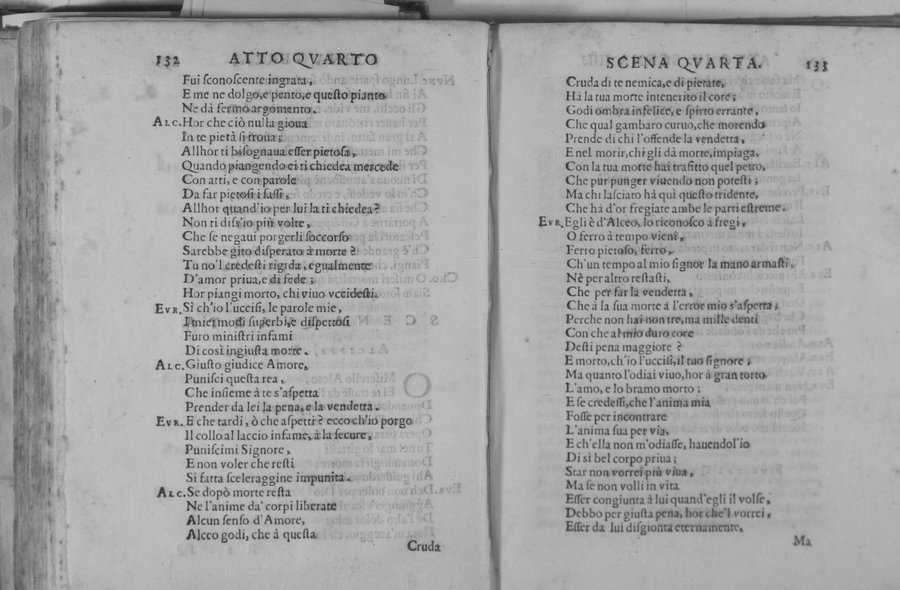 132 ATTO QVARTO
Fui ſconoſcente ingrata,
E me ne dolgo, e pento, e queſto pianto
Ne dà fermo argomento.
ALC. Hor che ciò nulla gioua
In te pietà ſi troua;
Allhor ti biſognaua eſſer pietoſa,
Quando piangendo ei ti chiedea mercede
Con atti, e con parole
Da far pietoſi i ſaſſi,
Allhor quand'io per lui la ti chiedea?
Non ti diſſ'io più volte,
Che ſe negaui porgerli ſoccorſo
Sarebbe gito diſperato à morte?
Tu no'l credeſti rigida, egualmente
D'amor priua, e di fede;
Hor piangi morto, chi viuo vccideſti.
EVR. Sì ch'io l'ucciſi, le parole mie,
I miei modi ſuperbi, e diſpettoſi
Furo miniſtri infami
Di così ingiuſta morte.
ALC. Giuſto giudice Amore,
Puniſci queſta rea,
Che inſieme à te s'aſpetta
Prender da lei la pena, e la vendetta.
EVR. E che tardi, ò che aſpetti? ecco ch'io porgo
Il collo al laccio infame, à la ſecure,
Puniſcimi Signore,
E non voler che reſti
Sì fatta ſceleraggine impunita.
ALC. Se dopò morte reſta
Ne l'anime da' corpi liberate
Alcun ſenſo d'Amore,
Alceo godi, che à queſta
Cruda
SCENA QVARTA. 133
Cruda di te nemica, e di pietate,
Hà la tua morte intenerito il core;
Godi ombra infelice, e ſpirto errante,
Che qual gambaro curuo, che morendo
Prende di chi l'offende la vendetta,
E nel morir, chi gli dà morte, impiaga,
Con la tua morte hai trafitto quel petto,
Che pur punger viuendo non poteſti;
Ma chi laſciato hà quì queſto tridente,
Che hà d'or fregiate ambe le parti eſtreme.
EVR. Egli è d'Alceo, lo riconoſco à fregi,
O ferro à tempo vieni,
Ferro pietoſo, ferro,
Ch'un tempo al mio ſignor la mano armaſti,
Nè per altro reſtaſti,
Che per far la vendetta,
Che à la ſua morte à l'error mio s'aſpetta;
Perche non hai non tre, ma mille denti
Con che al mio duro core
Deſti pena maggiore?
E morto, ch'io l'ucciſi, il tuo ſignore;
Ma quanto l'odiai viuo, hor à gran torto
L'amo, e lo bramo morto;
E ſe credeſſi, che l'anima mia
Foſſe per incontrare
L'anima ſua per via,
E ch'ella non m'odiaſſe, hauendol'io
Di sì bel corpo priua;
Star non vorrei più viua,
Ma ſe non volli in vita
Eſſer congiunta à lui quand'egli il volſe,
Debbo per giuſta pena, hor che'l vorrei,
Eſſer da lui diſgionta eternamente,
Ma